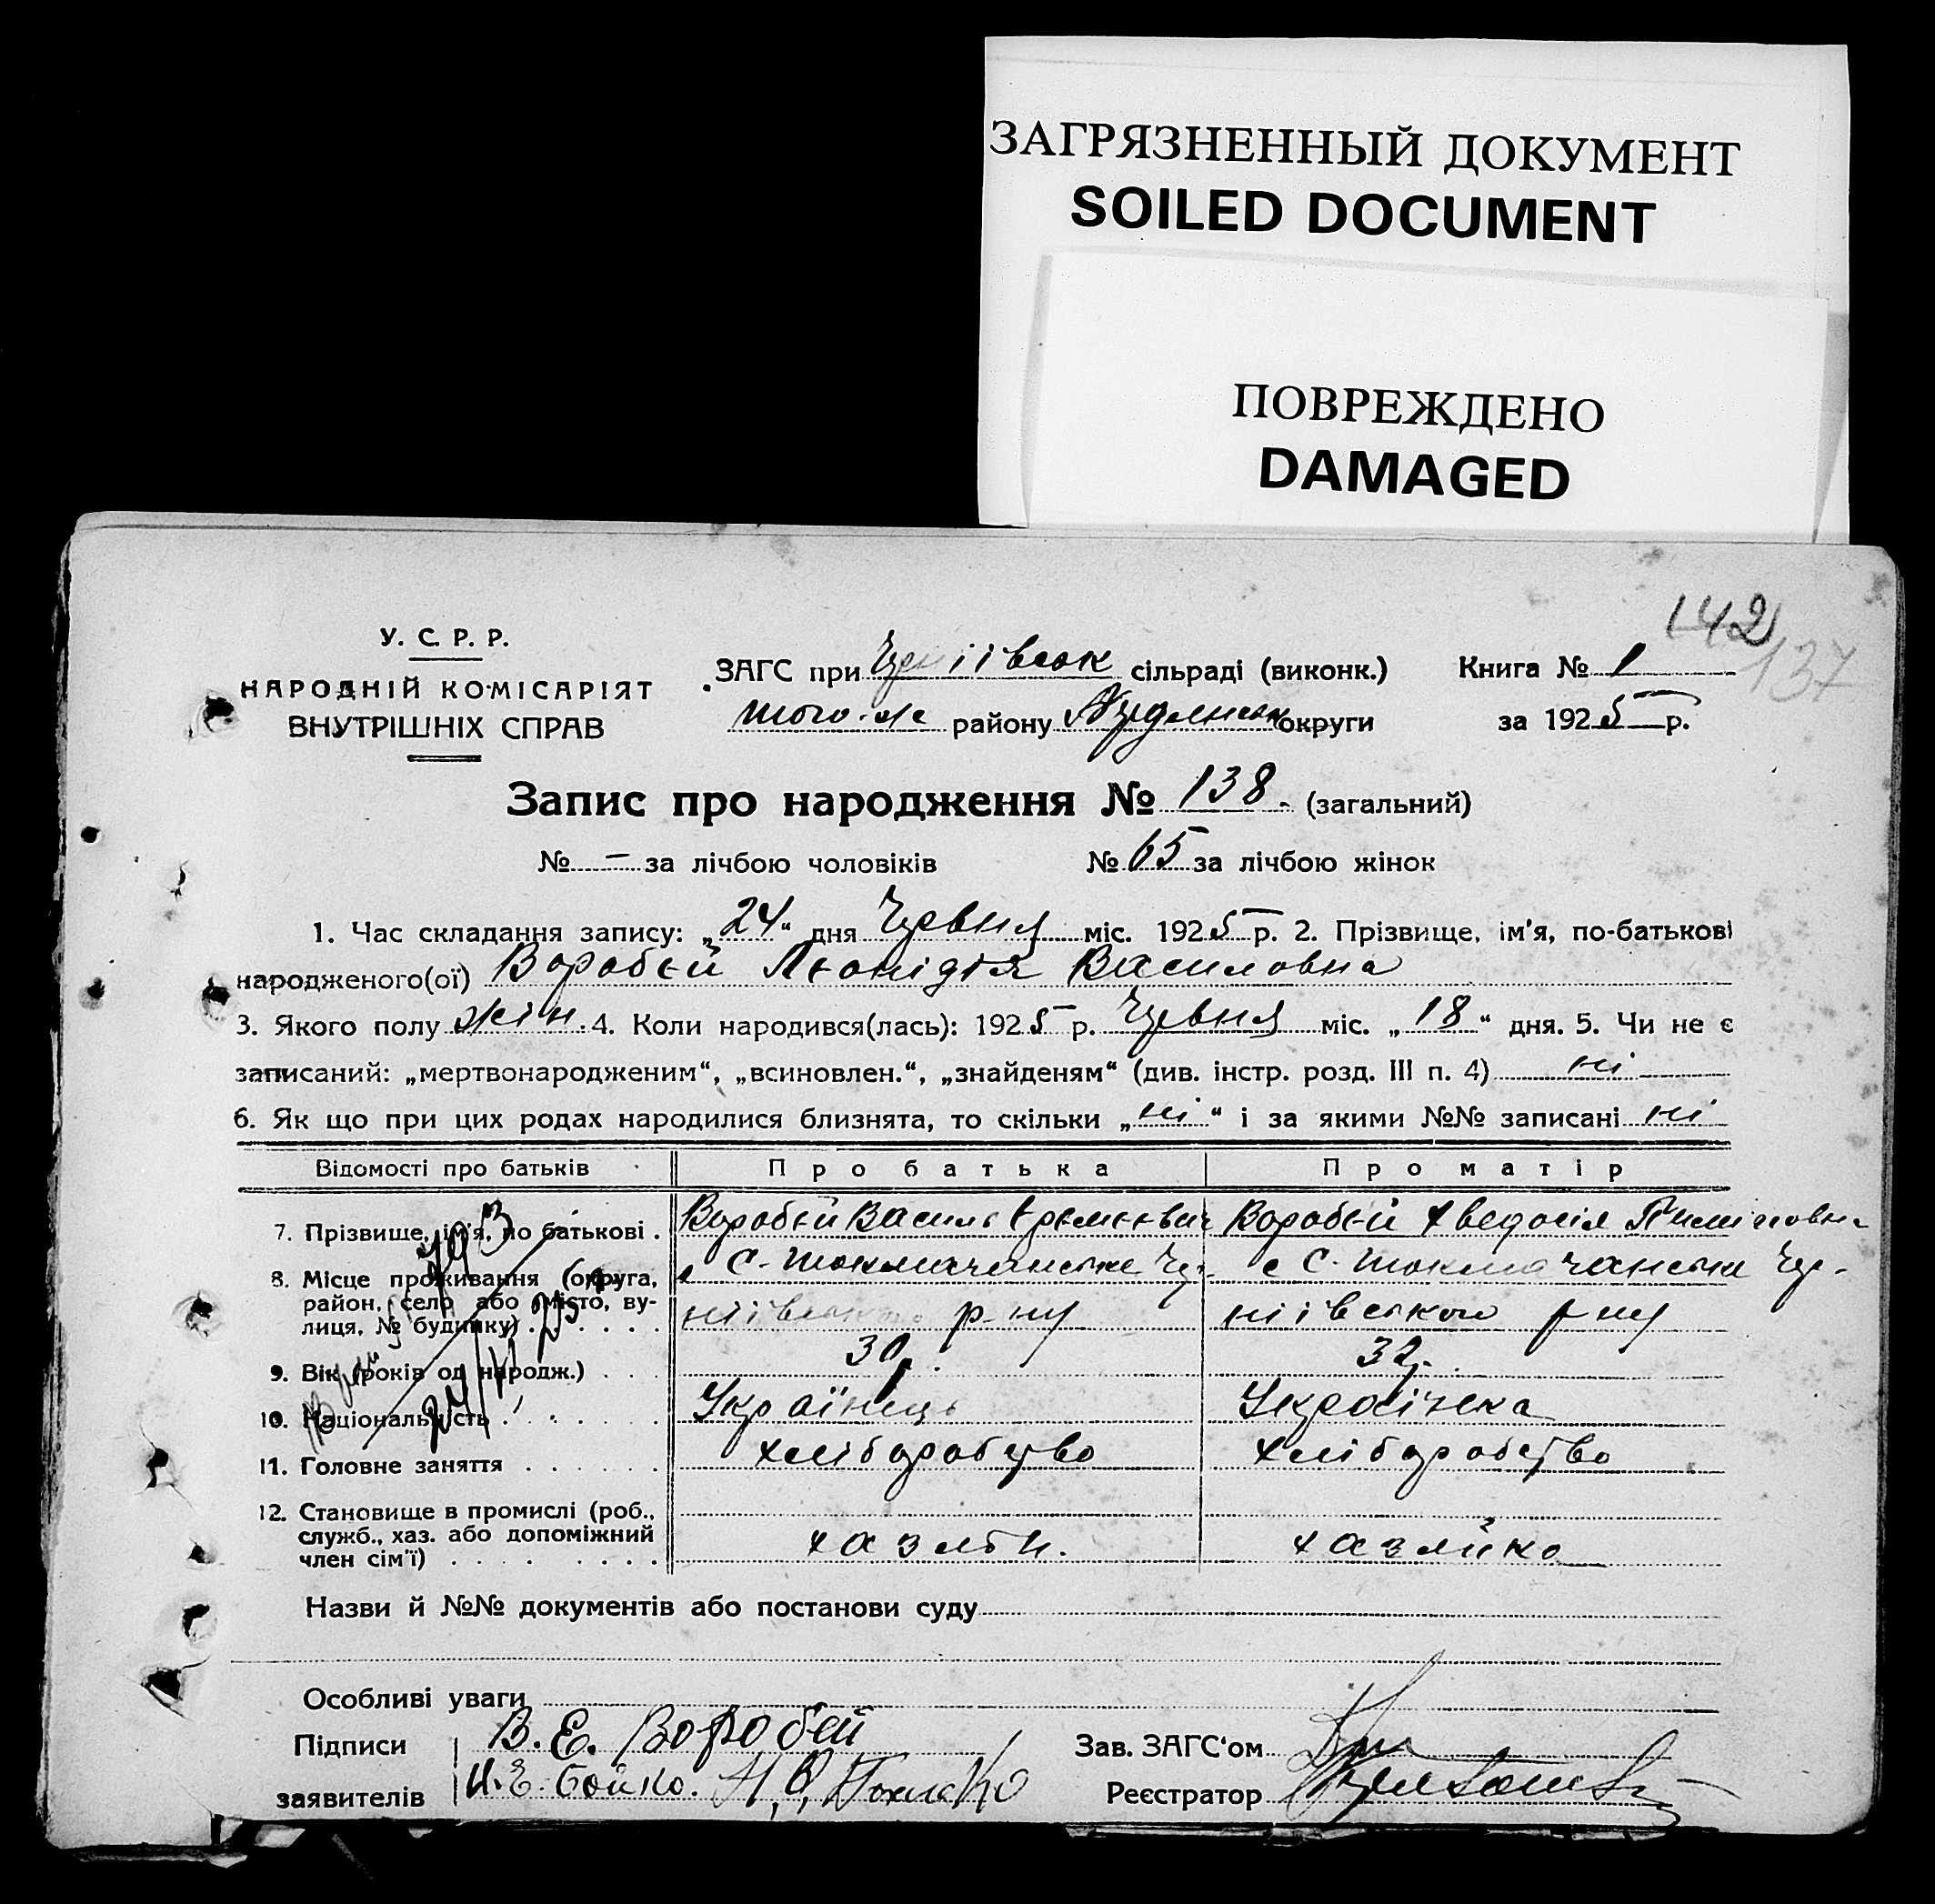 ЗАГРЯЗНЕННЫЙ ДОКУМЕНТ
SOILED DOCUMENT
ПОВРЕЖДЕНО
DAMAGED
142
137
У. С. Р. Р.
НАРОДНІЙ КОМІСАРІЯТ
ВНУТРІШНІХ СПРАВ
ЗАГС при сільраді (виконк.)
того-же району округи
Книга № 1
за 1925 р.
Запис про народження № 138. (загальний)
№ – за лічбою чоловіків № 65 за лічбою жінок
1. Час складання запису: „24“ дня Червня міс. 1925 р. 2. Прізвище, ім'я, по-батькові
народженого(ої) Воробєй Лєонідія Василовна
3. Якого полу жін. 4. Коли народився(лась): 1925 р. Червня міс. „18“ дня. 5. Чи не є
записаний: „мертвонародженим“, „всиновлен.“, „знайденям“ (див. інстр. розд. III п. 4) ні
6. Як що при цих родах народилися близнята, то скільки „ні“ і за якими №№ записані ні
Відомості про батьків Про батька Про матір
7. Прізвище, ім'я, по батькові . Воробєй Василь Воробєй Хведосія
8. Місце проживання (округа, район, село або місто, ву-лиця, № будинку)
с С. Токмачанське Чер-
ніівсько р-ну
с С. Токмачанське Чер-
ніівсько р-ну
9. Вік (років од народж.) . . . 30р. 32р.
10. Національність . . . . . . Українець Українка
11. Головне заняття . . . . . . хліборобство хліборобство
12. Становище в промислі (роб.,
служб., хаз. або допоміжний
член сім'ї) . . . . . . . . . хазяїн. хазяйка
Назви й №№ документів або постанови суду
Особливі уваги
Підписи В. Е. Воробей Зав. ЗАГС'ом
заявителів И. Е. Бойко. Реєстратор